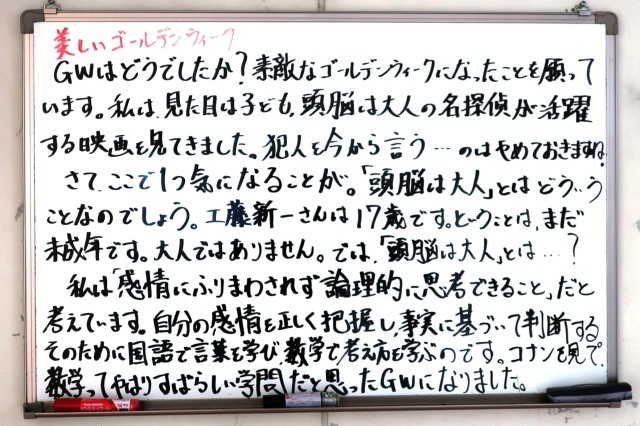 美しいゴールデンウィーク
GWはどうでしたか？素敵なゴールデンウィークになったことを願って
います。私は、見た目は子ども、頭脳は大人の名探偵が活躍
する映画を見てきました。犯人を今から言う…のはやめておきますね。
さて、ここで1つ気になることが。「頭脳は大人」とはどういう
ことなのでしょう。工藤新一さんは17歳です。ということは、まだ
未成年です。大人ではありません。では、「頭脳は大人」とは…？
私は「感情にふりまわされず論理的に思考できること」だと
考えています。自分の感情を正しく把握し、事実に基づいて判断する。
そのために国語で言葉を学び、数学で考え方を学ぶのです。コナンを見て、
数学ってやはりすばらしい学問だと思ったGWになりました。